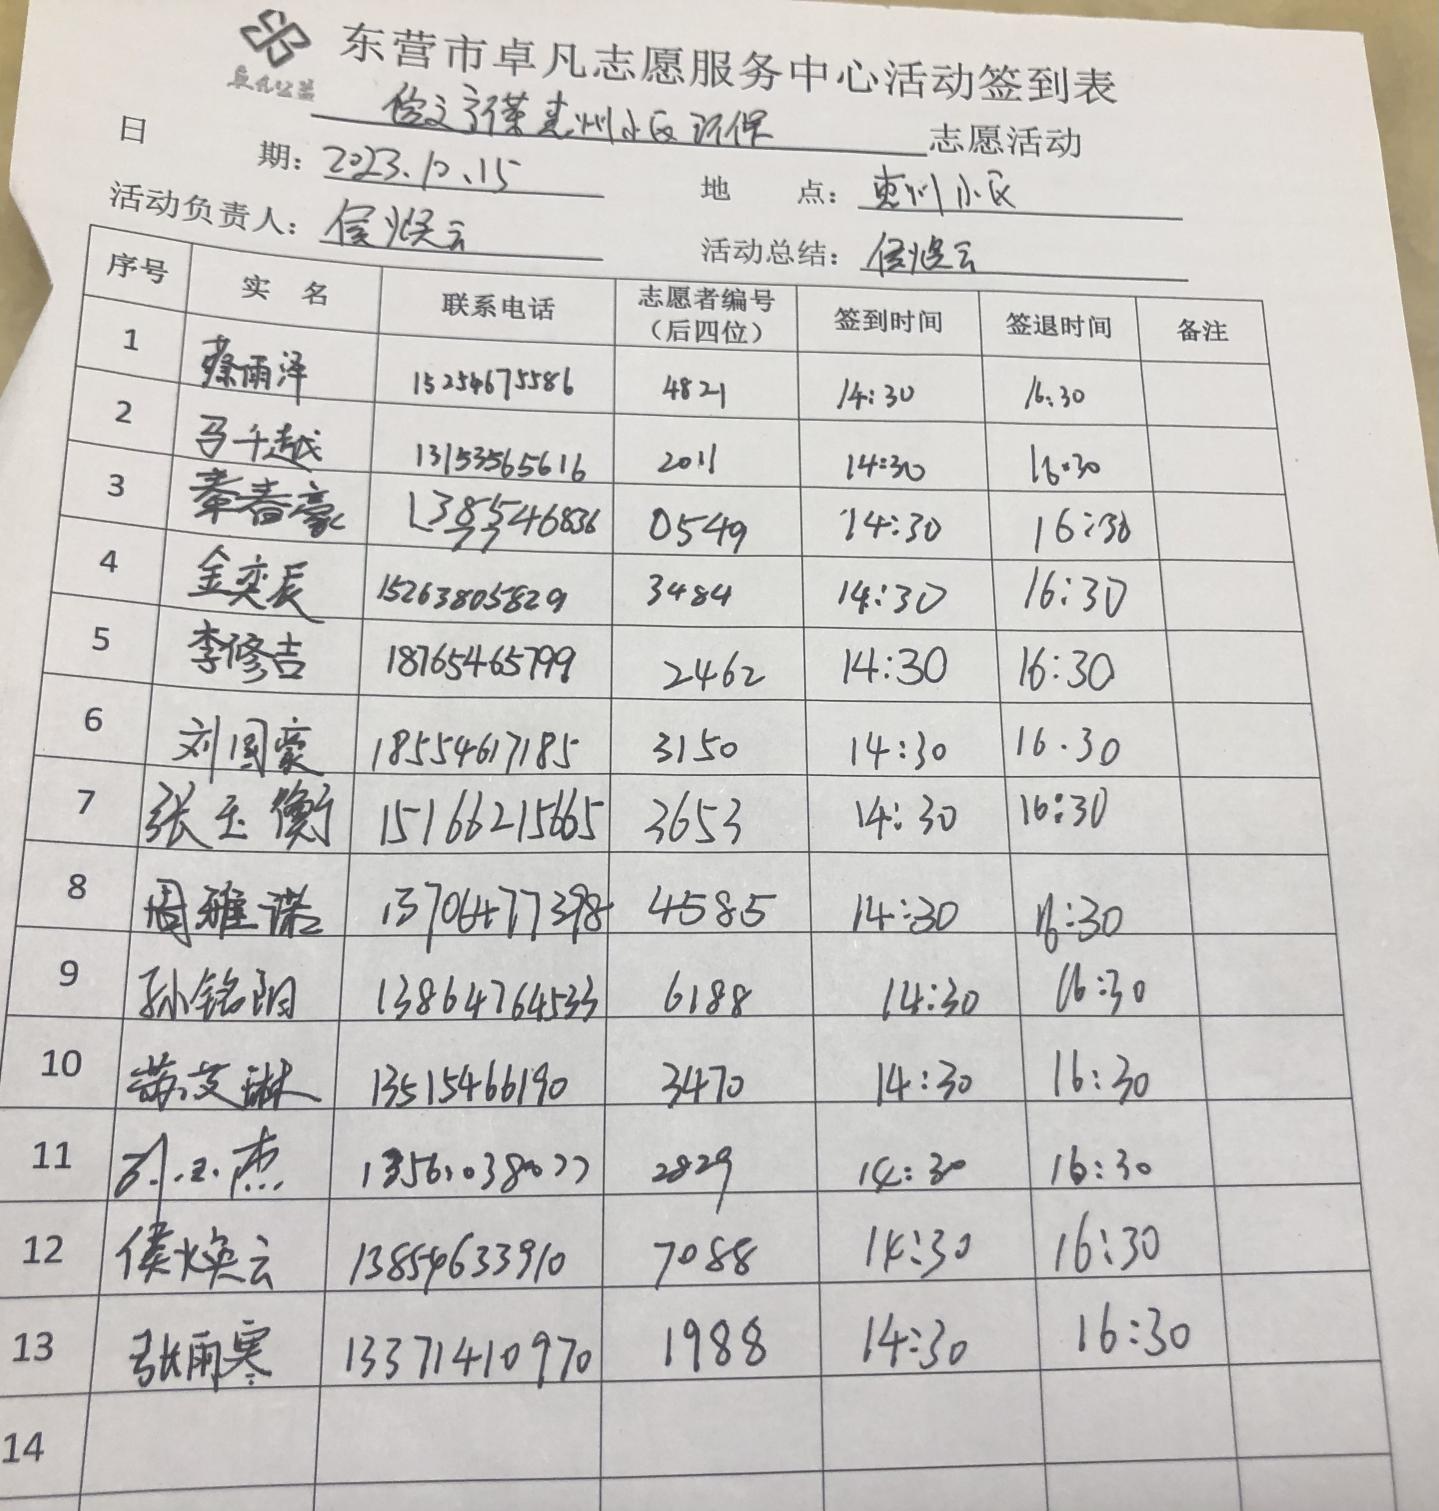 卓凡公益
东营市卓凡志愿服务中心活动签到表
惠州小区环保 志愿活动
日 期: 2023.10.15 地 点: 惠州小区
活动负责人: 侯焕云 活动总结: 侯焕云
序号 实 名 联系电话 志愿者编号(后四位) 签到时间 签退时间 备注
1 蔡雨泽 15254675586 4821 14:30 16:30
2 马千越 13153565616 2011 14:30 16:30
3 春豪 0549 14:30 16:30
4 金奕辰 15263805829 3484 14:30 16:30
5 李修吉 18765465799 2462 14:30 16:30
6 刘国豪 18554617185 3150 14:30 16.30
7 张玉衡 15166215665 3653 14:30 16:30
8 周雅诺 13706477398 4585 14:30 16:30
9 孙铭阳 13864764533 6188 14:30 16:30
10 艾琳 13515466190 3470 14:30 16:30
11 刘玉杰 13561038077 2829 14:30 16:30
12 侯焕云 13854633910 7088 14:30 16:30
13 张雨寒 13371410970 1988 14:30 16:30
14